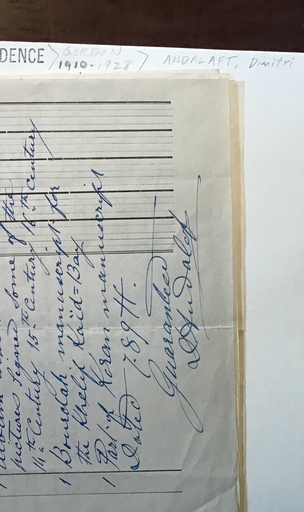 1 Album
pictures Signed Some of the
14th Century 15th Century 16th Century
1 Bourdah manuscript for
the Khelif Kaïd=Bay
1 Part of Koran manuscript
Dated 789 H.
Guaranteed
D Andalaft
DENCE
1910-1928
ANDALAFT, Dimitri